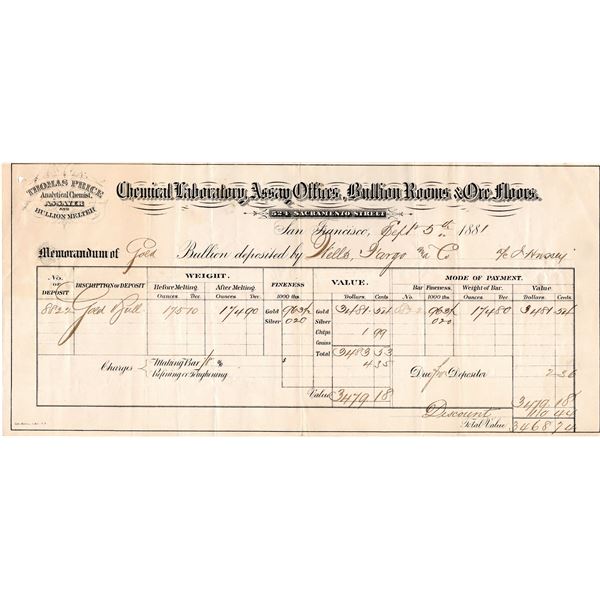 THOMAS PRICE
Analytical Chemist,
ASSAYER
AND
BULLION MELTER
Chemical Laboratory, Assay Offices, Bullion Rooms & Ore Floors.
524 SACRAMENTO STREET
San Francisco, Sept 5th 1881
Memorandum of Gold Bullion deposited by Wells, Fargo & Co
No. OF DEPOSIT DISCRIPTION OF DEPOSIT WEIGHT. FINENESS VALUE. MODE OF PAYMENT.
Before Melting. After Melting. 1000 ths Dollars. Cents Bar No. Fineness. 1000 ths Weight of Bar. Value
Ounces Dec. Ounces. Dec. Ounces. Dec. Dollars. Cents
8822 Gold Bull 175 70 174 90 Gold Gold 3481 174 80 3481
Silver 020 Silver 1 99 020
Chips
Grains
Total 3483 53
Charges Making Bar % 4 35
Refining or Toughening $ Due for Depositor 2 36
Value 3479 18 3479 18
Discount 10 44
Total Value 3468 74